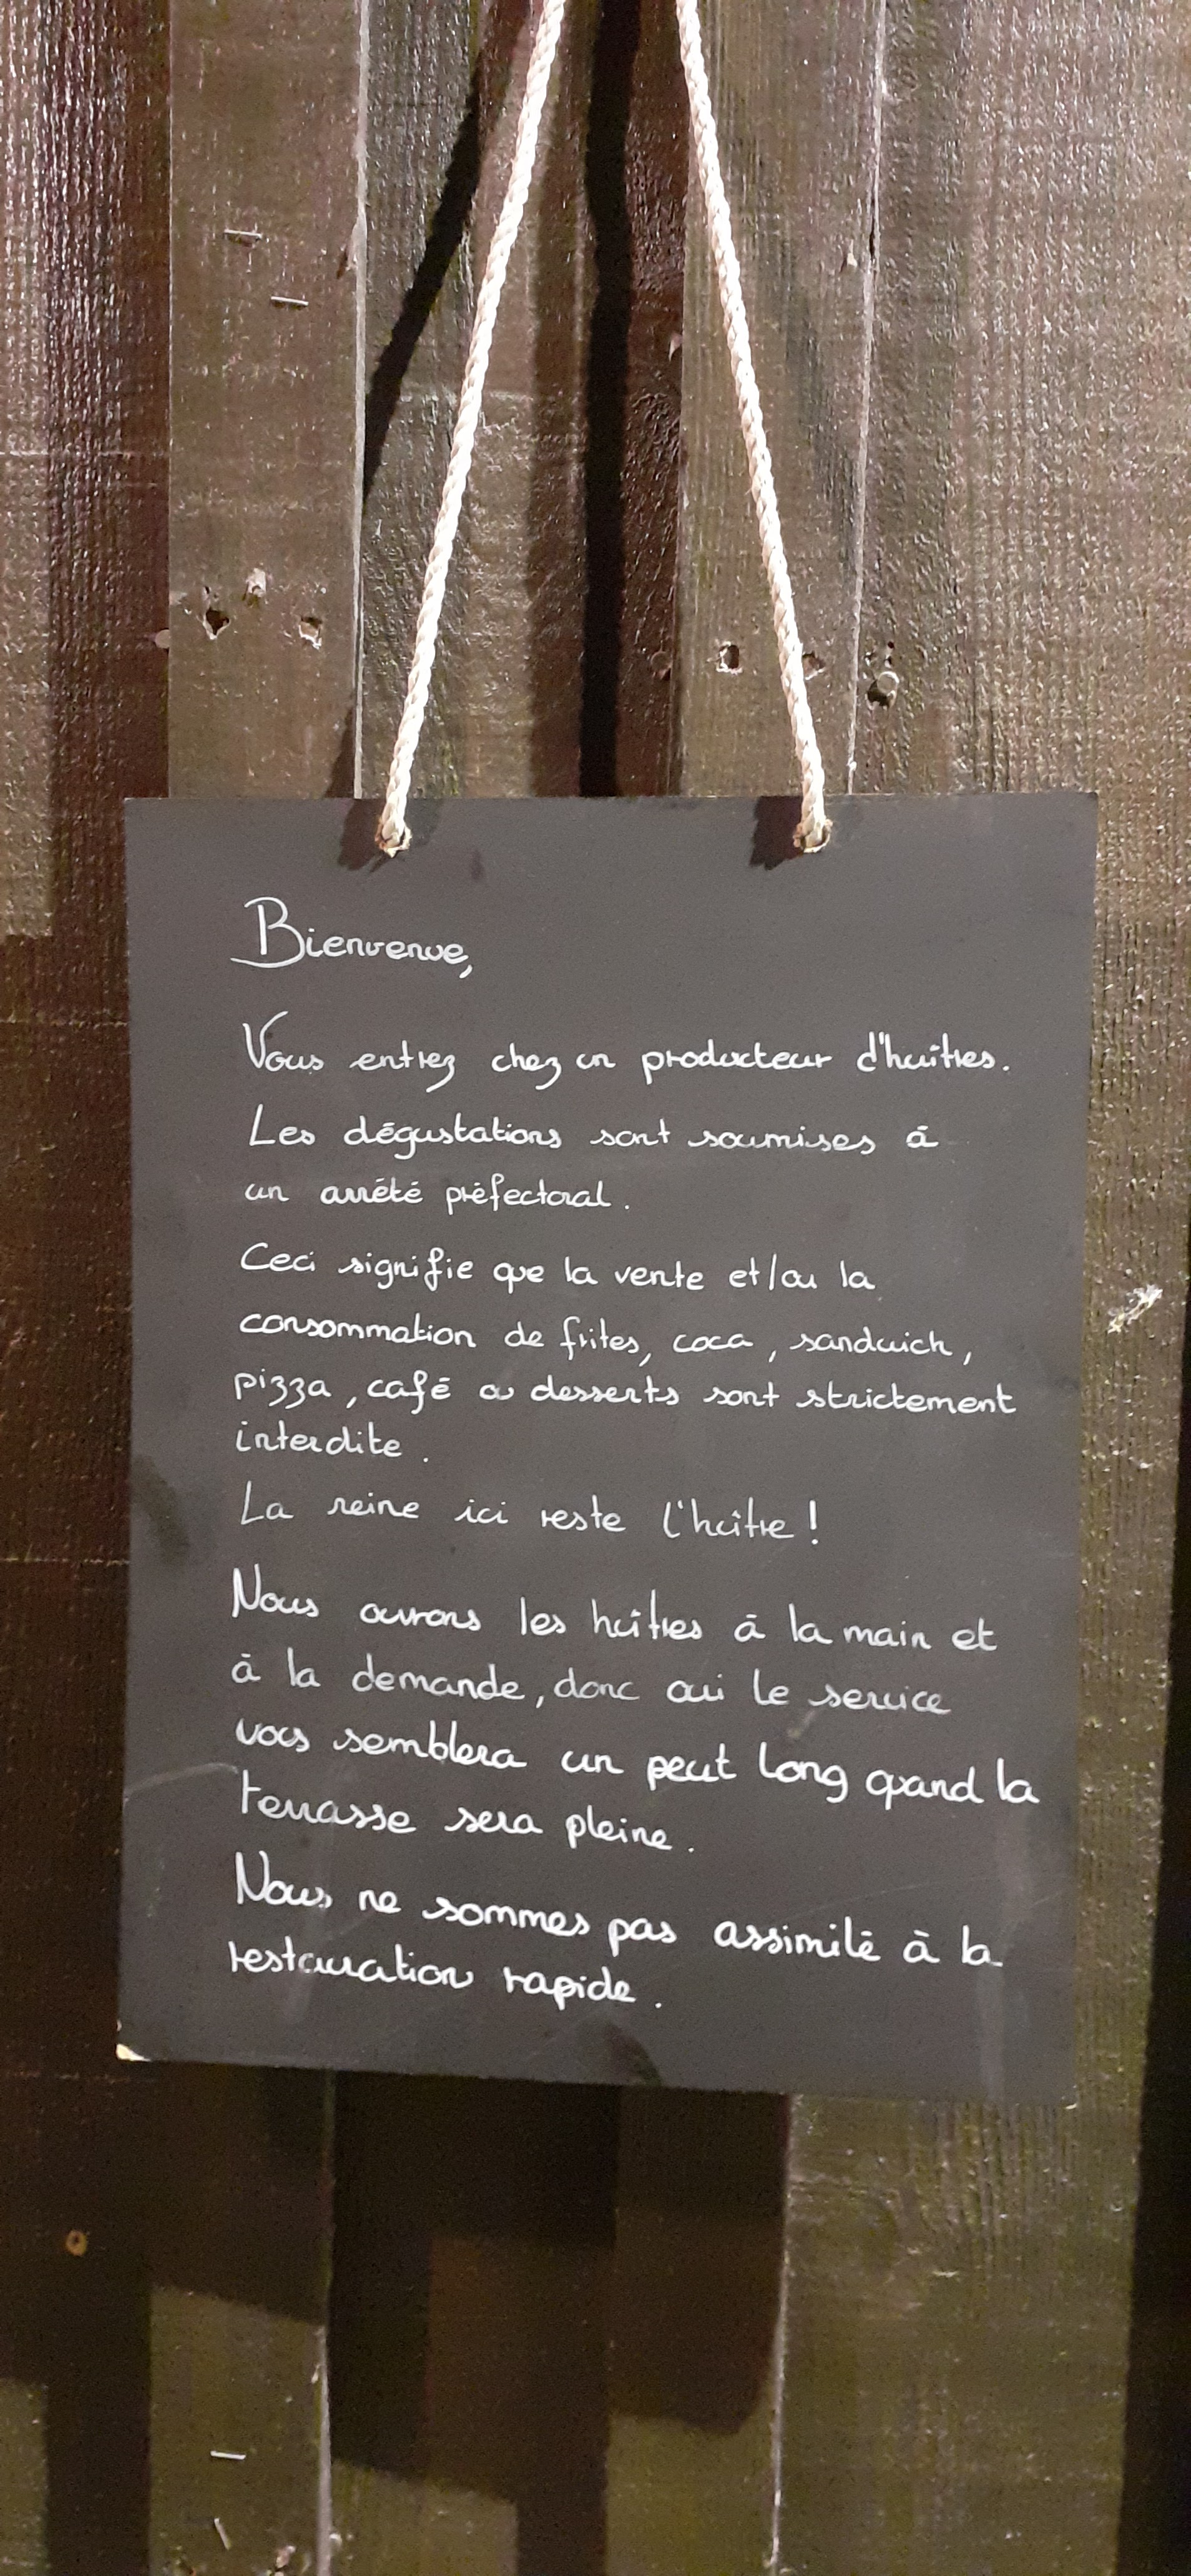 Bienvenue,
Vous entrez chez un producteur d'huîtres.
Les dégustations sont soumises à
un arrêté préfectoral.
Ceci signifie que la vente et/ou la
consommation de frites, coca, sandwich,
pizza, café ou desserts sont strictement
interdite.
La reine ici reste l'huître !
Nous ouvrons les huîtres à la main et
à la demande, donc oui le service
vous semblera un peut long quand la
terrasse sera pleine.
Nous ne sommes pas assimilé à la
restauration rapide.